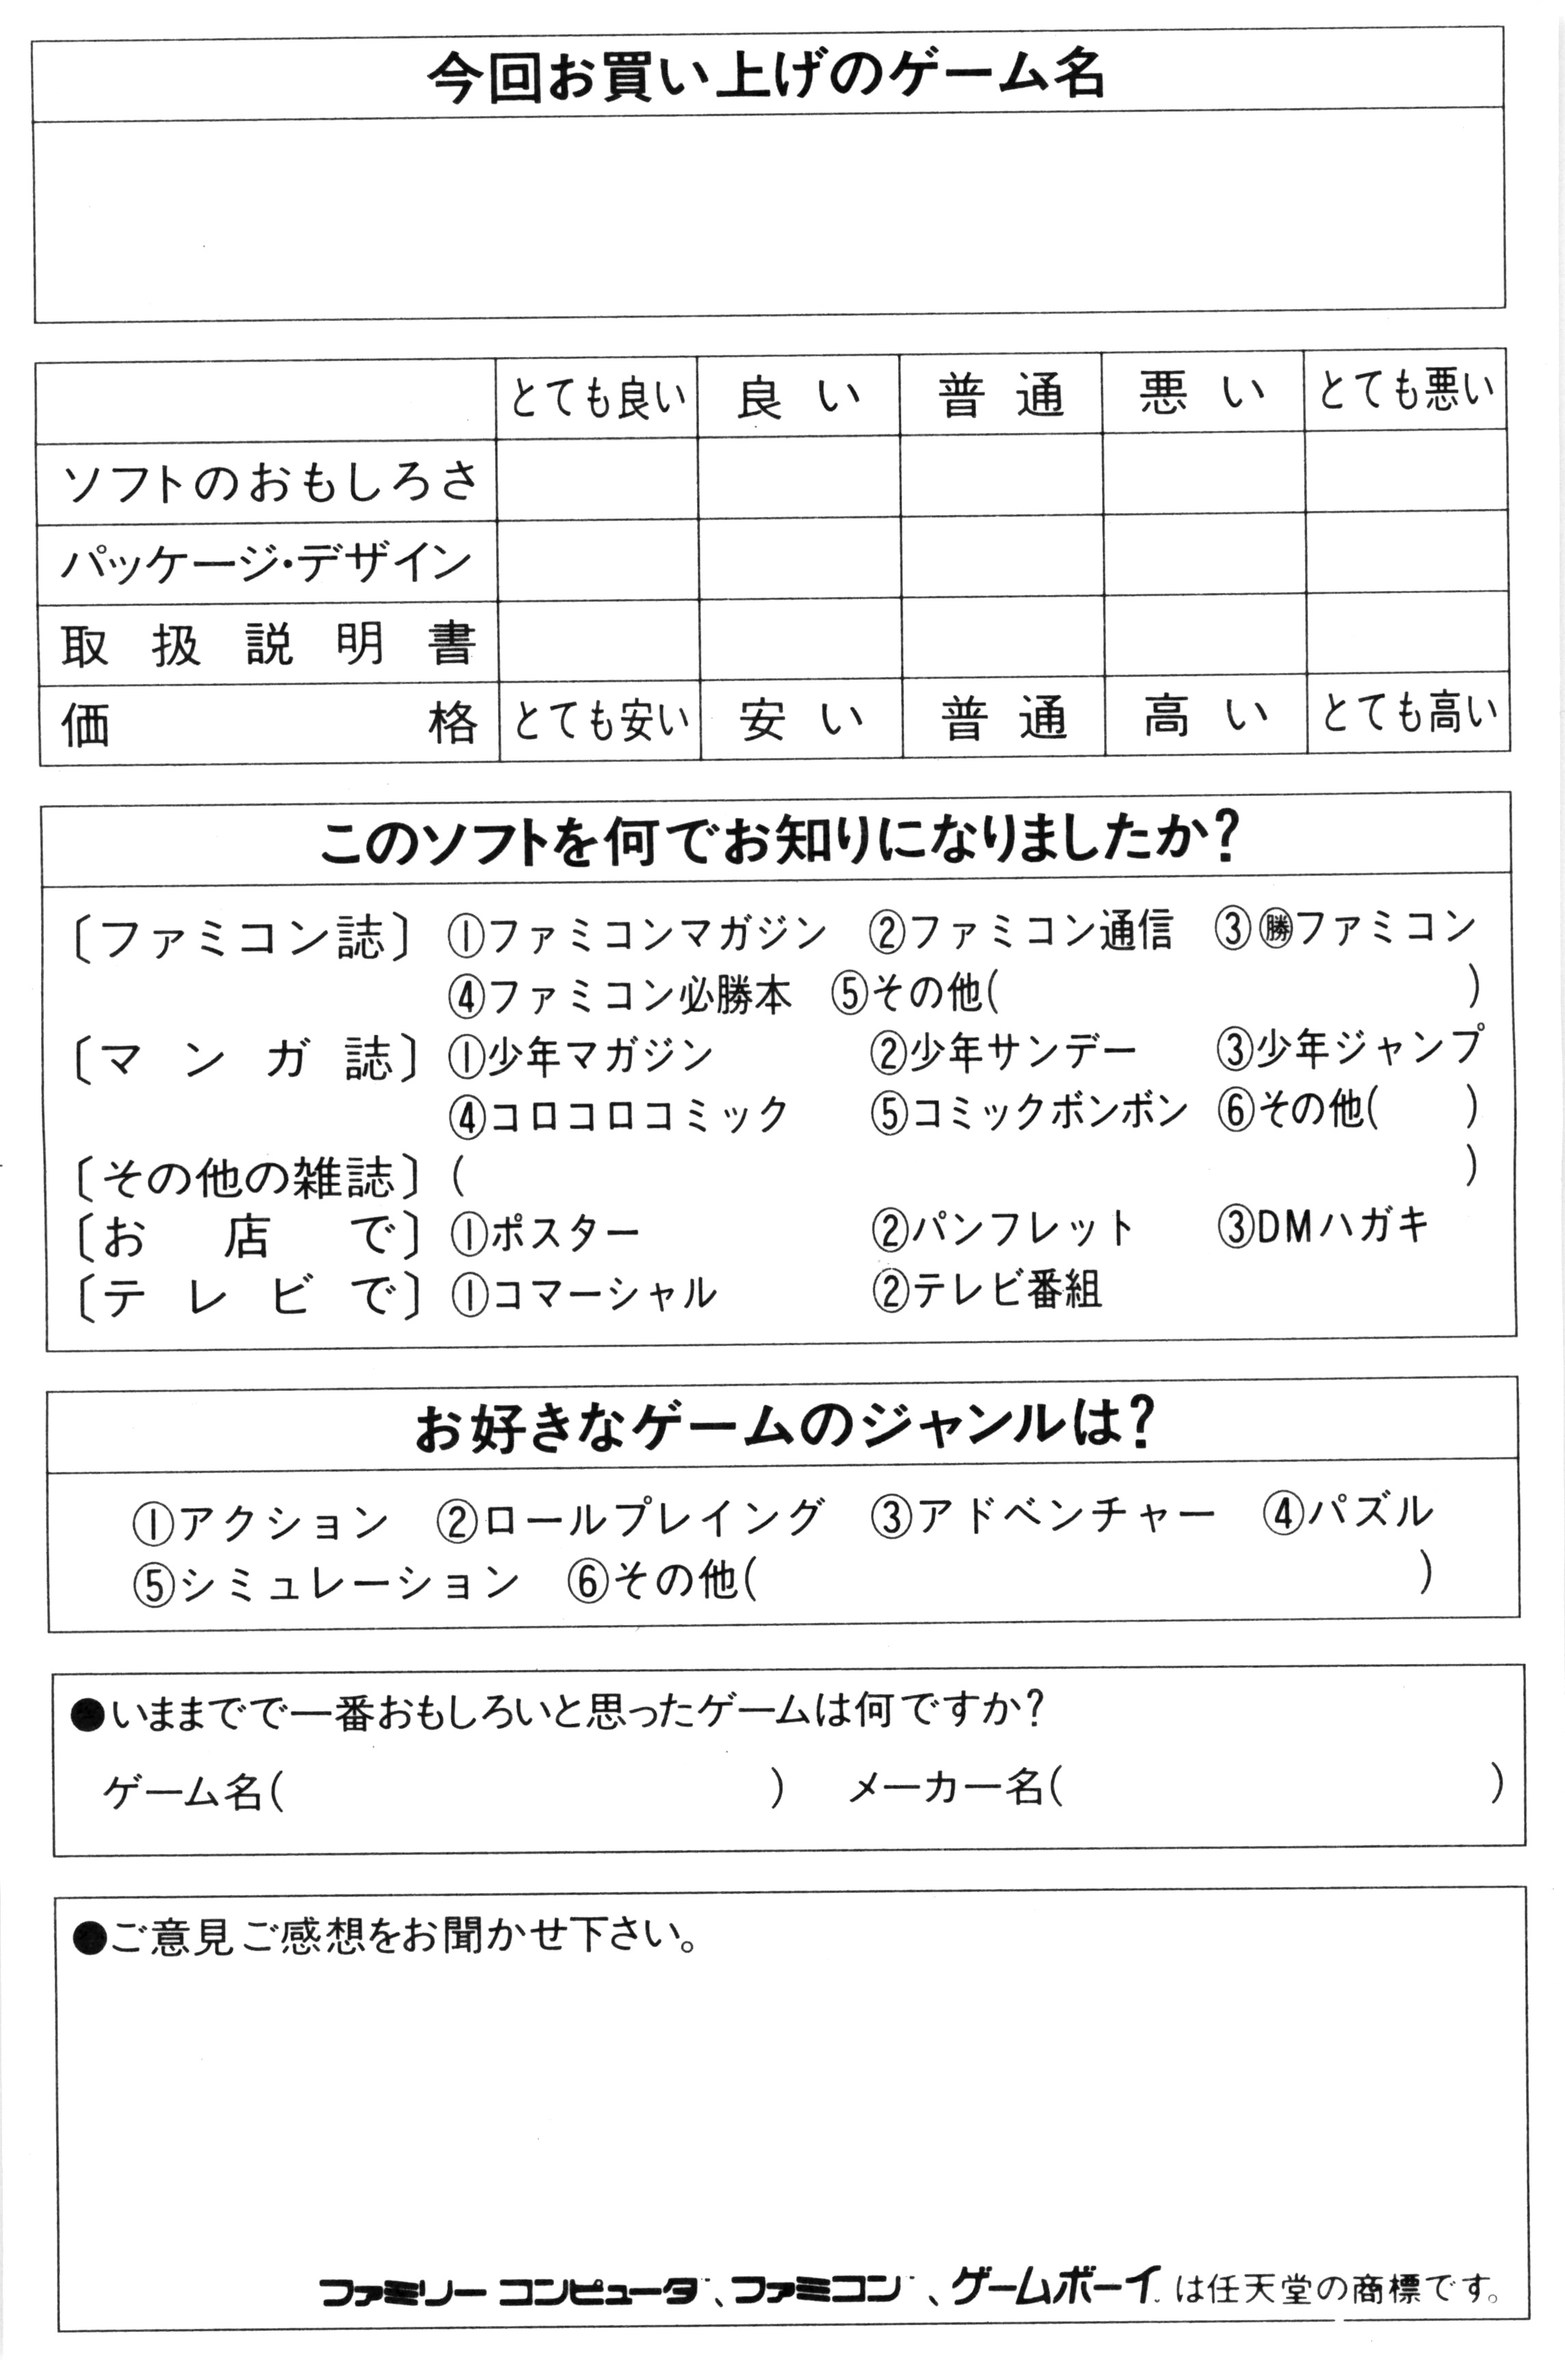 今回お買い上げのゲーム名
とても良い 良い 普通 悪い とても悪い
ソフトのおもしろさ
パッケージ・デザイン
取扱説明書
価格 とても安い 安い 普通 高い とても高い
このソフトを何でお知りになりましたか?
〔ファミコン誌〕 ①ファミコンマガジン ②ファミコン通信 ③㊙勝ファミコン
④ファミコン必勝本 ⑤その他( )
〔マンガ誌〕 ①少年マガジン ②少年サンデー ③少年ジャンプ
④コロコロコミック ⑤コミックボンボン ⑥その他( )
〔その他の雑誌〕 ( )
〔お店で〕 ①ポスター ②パンフレット ③DMハガキ
〔テレビで〕 ①コマーシャル ②テレビ番組
お好きなゲームのジャンルは?
①アクション ②ロールプレイング ③アドベンチャー ④パズル
⑤シミュレーション ⑥その他( )
●いままでで一番おもしろいと思ったゲームは何ですか?
ゲーム名( ) メーカー名( )
●ご意見ご感想をお聞かせ下さい。
ファミリーコンピュータ、ファミコン、ゲームボーイは任天堂の商標です。